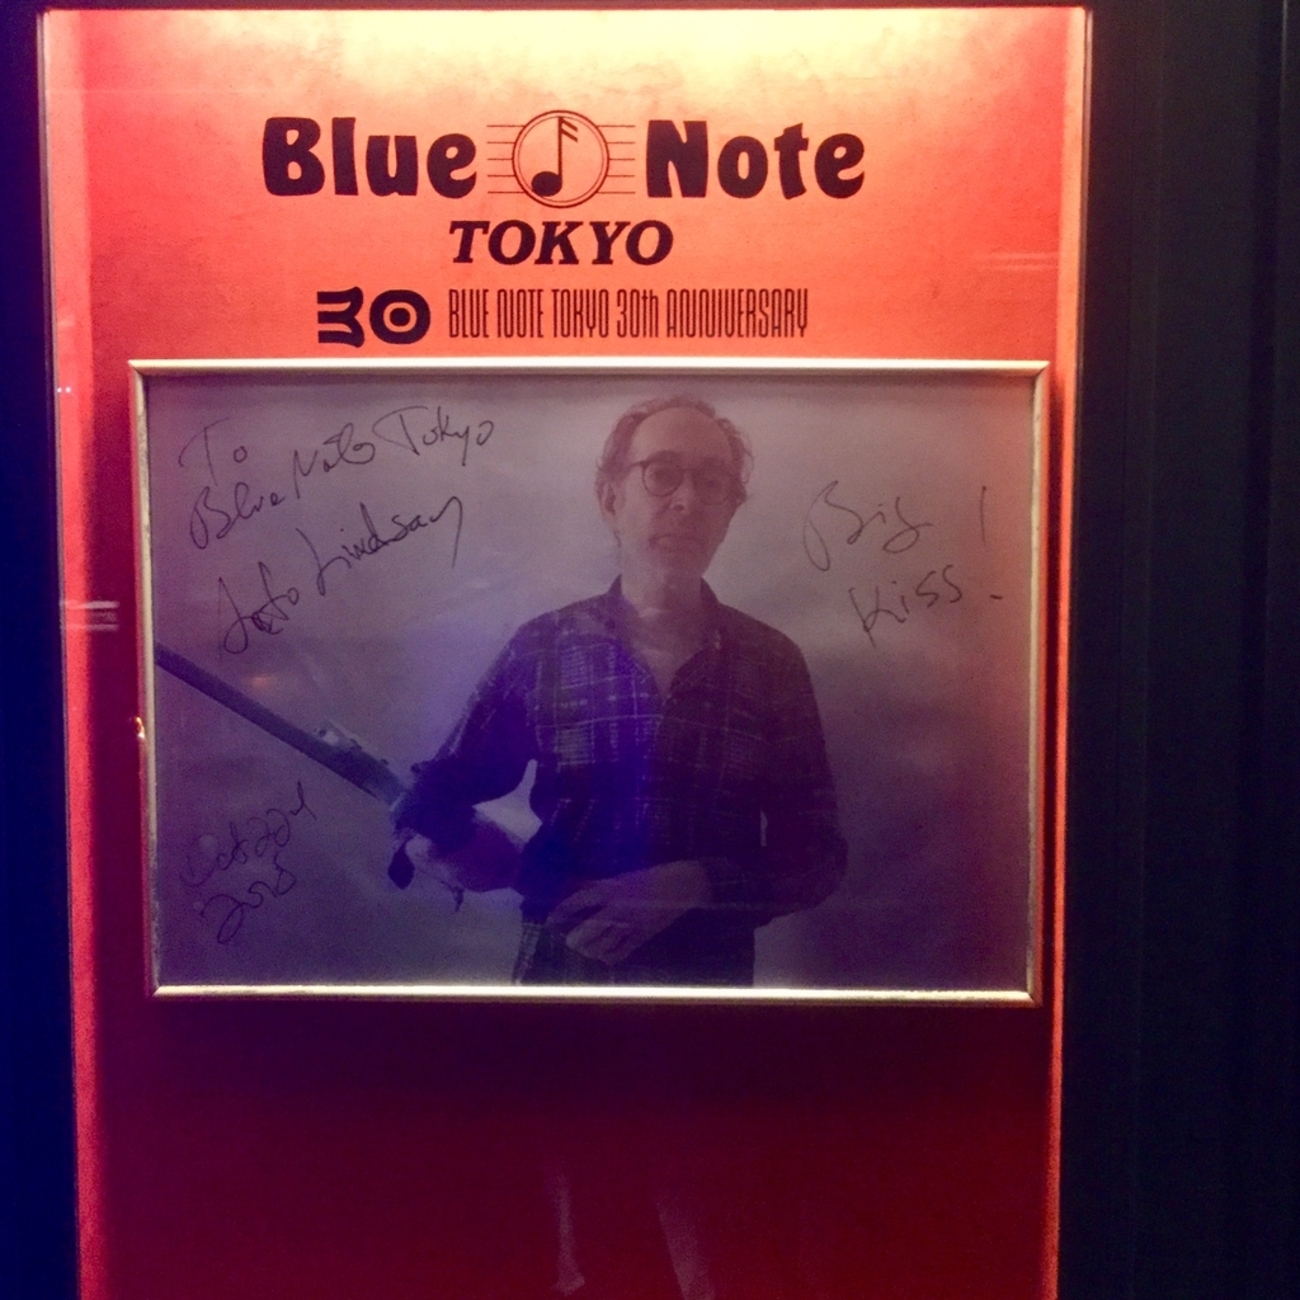 Blue Note
TOKYO
30 BLUE NOTE TOKYO 30th ANNIVERSARY
To
Blue Note Tokyo
Arto Lindsay
Big !
Kiss.
Oct 22nd
2018